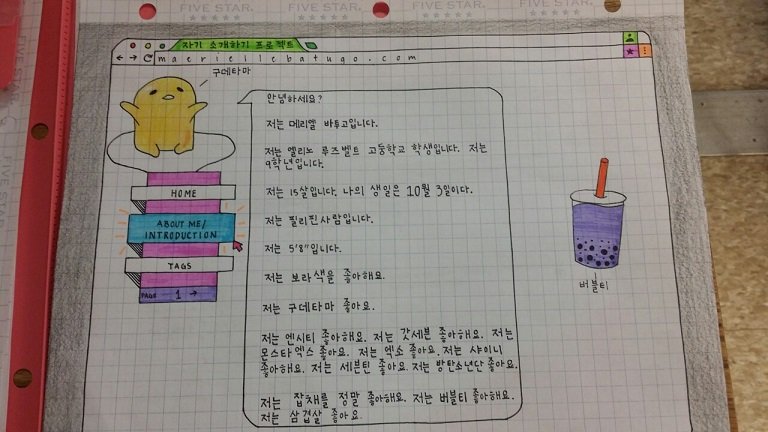 FIVE STAR.
FIVE STAR.
FIVE STAR.
자기 소개하기 프로젝트
maeriellebatugo.com
구데타마
안녕하세요?
저는 메리엘 바투고입니다.
저는 엘리노 루즈벨트 고등학교 학생입니다. 저는
9학년입니다.
저는 15살입니다. 나의 생일은 10월 3일이다.
저는 필리핀사람입니다.
저는 5'8"입니다.
저는 보라색을 좋아해요.
저는 구데타마 좋아요.
저는 엔시티 좋아해요. 저는 갓세븐 좋아해요. 저는
몬스타엑스 좋아요. 저는 엑소 좋아요. 저는 샤이니
좋아해요. 저는 세븐틴 좋아요. 저는 방탄소년단 좋아요.
저는 잡채를 정말 좋아해요. 저는 버블티 좋아해요.
저는 삼겹살 좋아요.
HOME
ABOUT ME/
INTRODUCTION
TAGS
PAGE 1 →
버블티